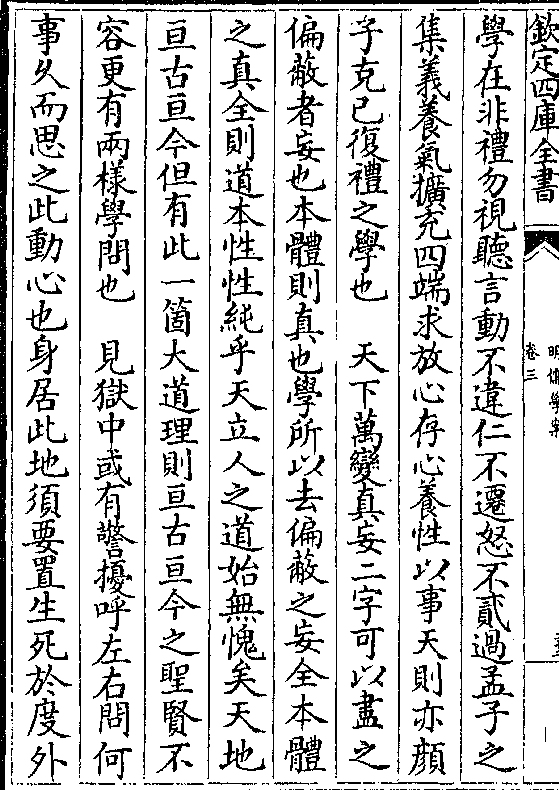 欽定四庫全書
明儒學案
卷三
學在非禮勿視聽言動不違仁不遷怒不貳過孟子之
集義養氣擴充四端求放心存心養性以事天則亦顔
子克已復禮之學也　天下萬變真妄二字可以盡之
偏蔽者妄也本體則真也學所以去偏蔽之妄全本體
之真全則道本性性純乎天立人之道始無愧矣天地
亘古亘今但有此一箇大道理則亘古亘今之聖賢不
容更有兩様學問也　見獄中或有警擾呼左右問何
事久而思之此動心也身居此地須要置生死於度外